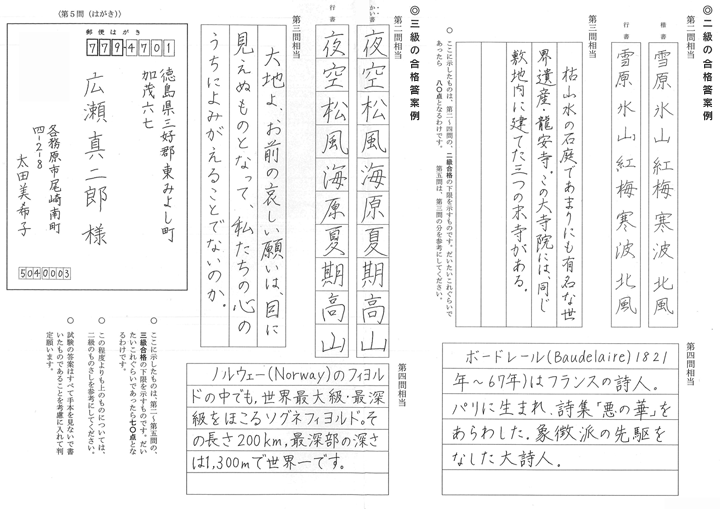 ◎二級の合格答案例
第二問相当
楷書
雪原 氷山 紅梅 寒波 北風
行書
雪原 氷山 紅梅 寒波 北風
第三問相当
枯山水の石庭であまりにも有名な世
界遺産・龍安寺。この大寺院には、同じ
敷地内に建てた三つの末寺がある。
○ ここに示したものは、第二〜四問の、二級合格の下限を示すものです。だいたいこれぐらいで
あったら 八〇点となるわけです。 第五問は、第三問の分を参考にしてください。
第四問相当
ボードレール(Baudelaire)1821
年〜67年)はフランスの詩人。
パリに生まれ、詩集「悪の華」を
あらわした。象徴派の先駆を
なした大詩人。
◎三級の合格答案例
第二問相当
かい書
夜空松風海原夏期高山
行書
夜空松風海原夏期高山
第三問相当
大地よ、お前の哀しい願いは、目に
見えぬものとなって、私たちの心の
うちによみがえることでないのか。
第四問相当
ノルウェー(Norway)のフィヨル
ドの中でも、世界最大級・最深
級をほこるソグネフィヨルド。そ
の長さ200km、最深部の深さ
は1,300mで世界一です。
〈第5問(はがき)〉
郵便はがき
7794701
徳島県三好郡東みよし町
加茂六七
広瀬真二郎様
各務原市尾崎南町
四-2-8
太田美希子
5040003
○ ここに示したものは、第二〜第五問の、
三級合格の下限を示すものです。だい
たいこれぐらいであったら七〇点とな
るわけです。
○ この程度よりも上のものについては、
二級のものさしを参考にしてください。
○ 試験の答案はすべて手本を見ないで書
いたものであることを考慮に入れて判
定願います。